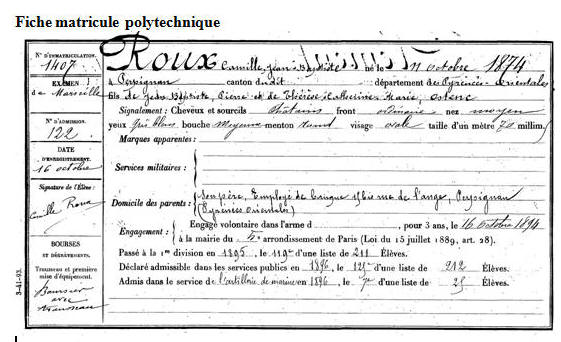 Fiche matricule polytechnique
N° D'IMMATRICULATION.
1407
EXAMEN
de Marseille
N° D'ADMISSION.
122
DATE
D'ENREGISTREMENT.
16 octobre
Signature de l'Élève :
Camille Roux
BOURSES
ET DÉGRÈVEMENTS.
Trousseau et première
mise d'équipement.
Boursier
avec
trousseau
3-41-93.
ROUX Camille, Jean, Baptiste né le 11 octobre 1874
à Perpignan canton dudit département des Pyrénées-Orientales
fils de Jean, Baptiste, Pierre et de Thérèse, Catherine, Marie, Ostenc
Signalement : Cheveux et sourcils châtains front ordinaire nez moyen
yeux gris bleus bouche moyenne menton rond visage ovale taille d'un mètre 70 millim.
Marques apparentes :
Services militaires :
Domicile des parents : Son père, Employé de banque rue de l'ange, Perpignan
(Pyrénées Orientales)
Engagement : Engagé volontaire dans l'arme d , pour 3 ans, le 16 octobre 1894
à la mairie du 5e arrondissement de Paris (Loi du 15 juillet 1889, art. 28).
Passé à la 1re division en 1895, le 119e d'une liste de 211 Élèves.
Déclaré admissible dans les services publics en 1896, le 125e d'une liste de 212 Élèves.
Admis dans le service de l'artillerie de marine en 1896, le 7e d'une liste de 25 Élèves.